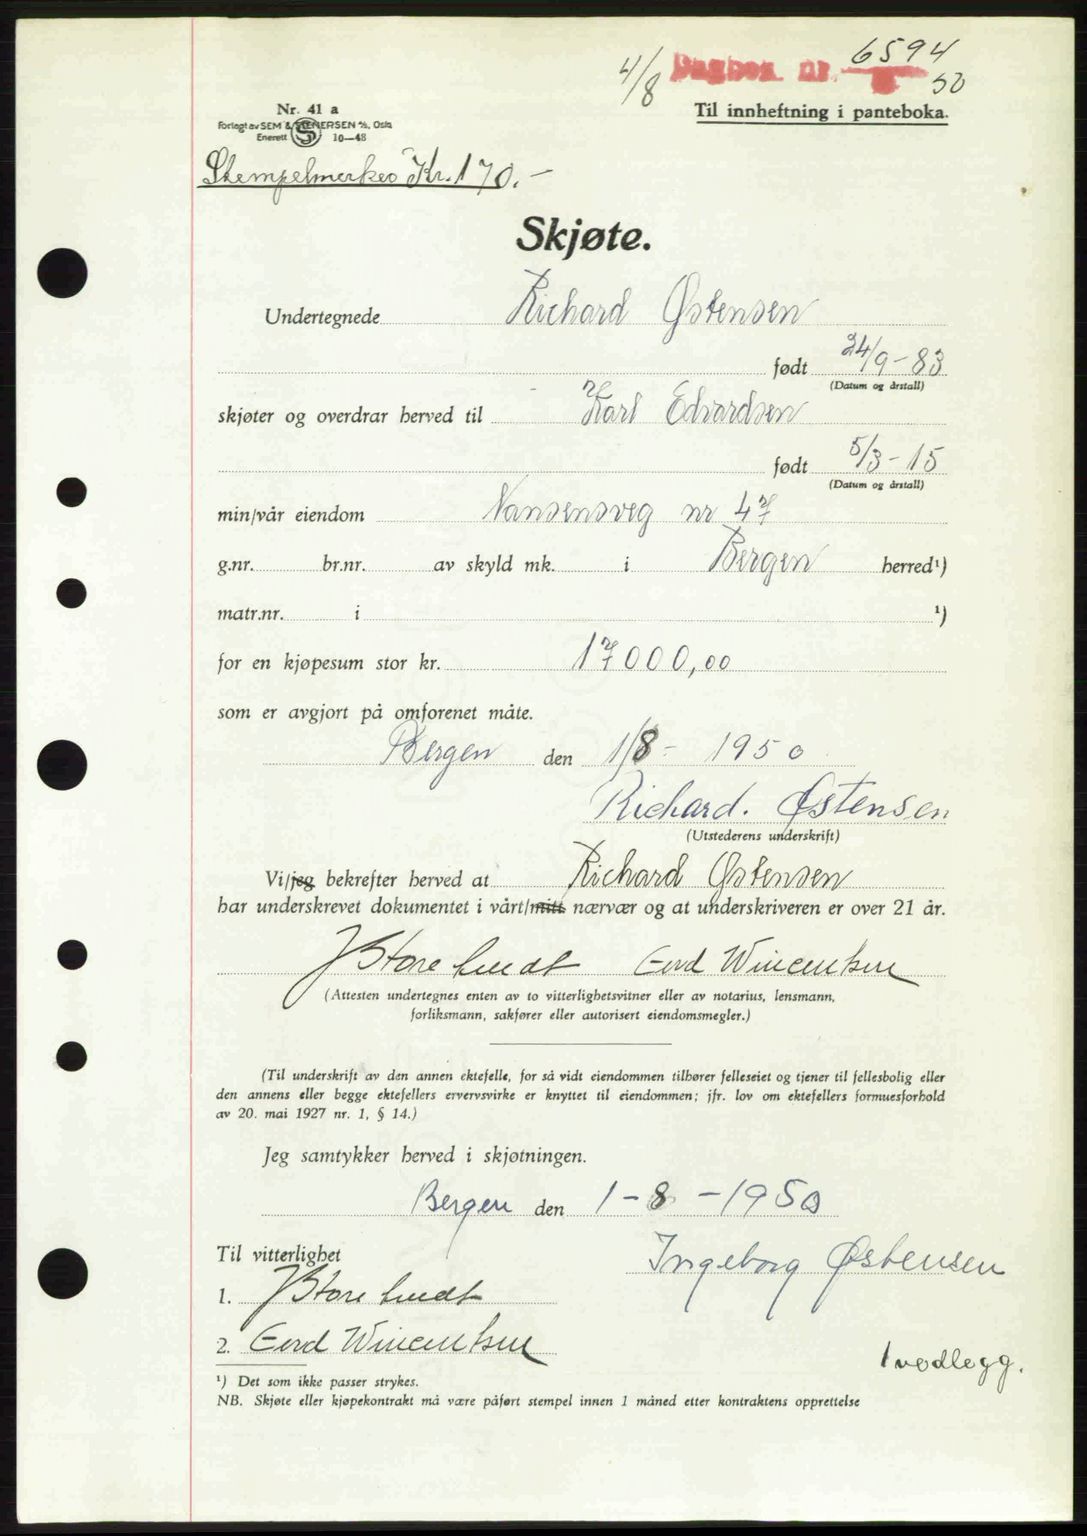 4/8 Dagbok nr. 6594
50
Til innheftning i panteboka.
Nr. 41 a
Forlagt av SEM & STENERSEN A/S, Oslo
Enerett S 10—48
Stempelmerker Kr. 170.-
Skjøte.
Undertegnede Richard Østensen
født 24/9-83
(Datum og årstall)
skjøter og overdrar herved til Karl Edvardsen
født 5/3-15
(Datum og årstall)
min/vår eiendom Nansensveg nr 47
g.nr. br.nr. av skyld mk. i Bergen herred¹)
matr.nr. i ¹)
for en kjøpesum stor kr. 17000,00
som er avgjort på omforenet måte.
Bergen den 1/8- 1950
Richard. Østensen
(Utstederens underskrift)
Vi/jeg bekrefter herved at Richard Østensen
har underskrevet dokumentet i vårt/mitt nærvær og at underskriveren er over 21 år.
Gerd
(Attesten undertegnes enten av to vitterlighetsvitner eller av notarius, lensmann,
forliksmann, sakfører eller autorisert eiendomsmegler.)
(Til underskrift av den annen ektefelle, for så vidt eiendommen tilhører felleseiet og tjener til fellesbolig eller
den annens eller begge ektefellers ervervsvirke er knyttet til eiendommen; jfr. lov om ektefellers formuesforhold
av 20. mai 1927 nr. 1, § 14.)
Jeg samtykker herved i skjøtningen.
Bergen den 1-8-1950
Til vitterlighet
Ingeborg Østensen
1.
2. Gerd
1 vedlegg.
¹) Det som ikke passer strykes.
NB. Skjøte eller kjøpekontrakt må være påført stempel innen 1 måned etter kontraktens opprettelse